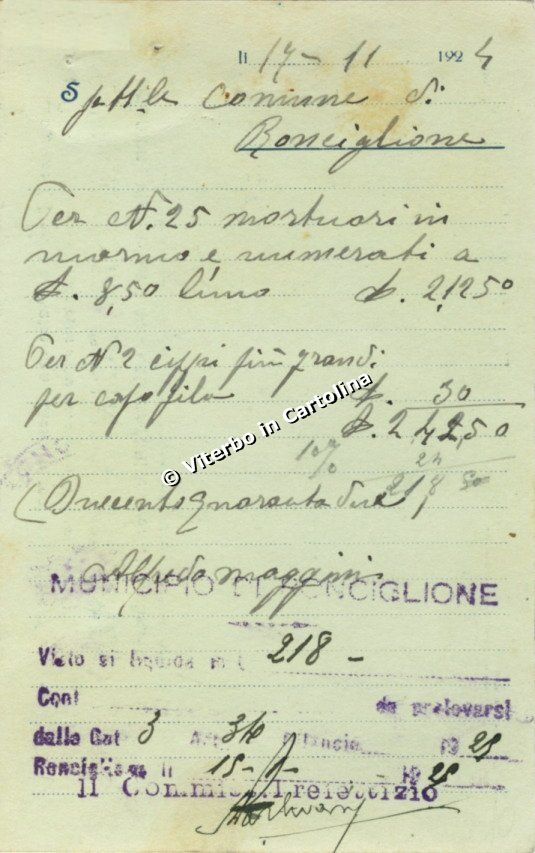 li 17-11 1924
Spett.le Comune di
Ronciglione
Per N. 25 mortuari in
marmo e numerati a
£. 8,50 l'uno £. 212,50
Per N 2 cippi più grandi
per capo fila £. 30
£. 242,50
10% 24
218 50
(Duecentoquarantadue
© Viterbo in Cartolina
Alfredo Maggini
MUNICIPIO DI RONCIGLIONE
Visto si liquida in £ 218 -
Cont da prelevarsi
dalla Cat 3 Art 34 Bilancio 1925
Ronciglione li 15- - 1925
Il Commiss. Prefettizio